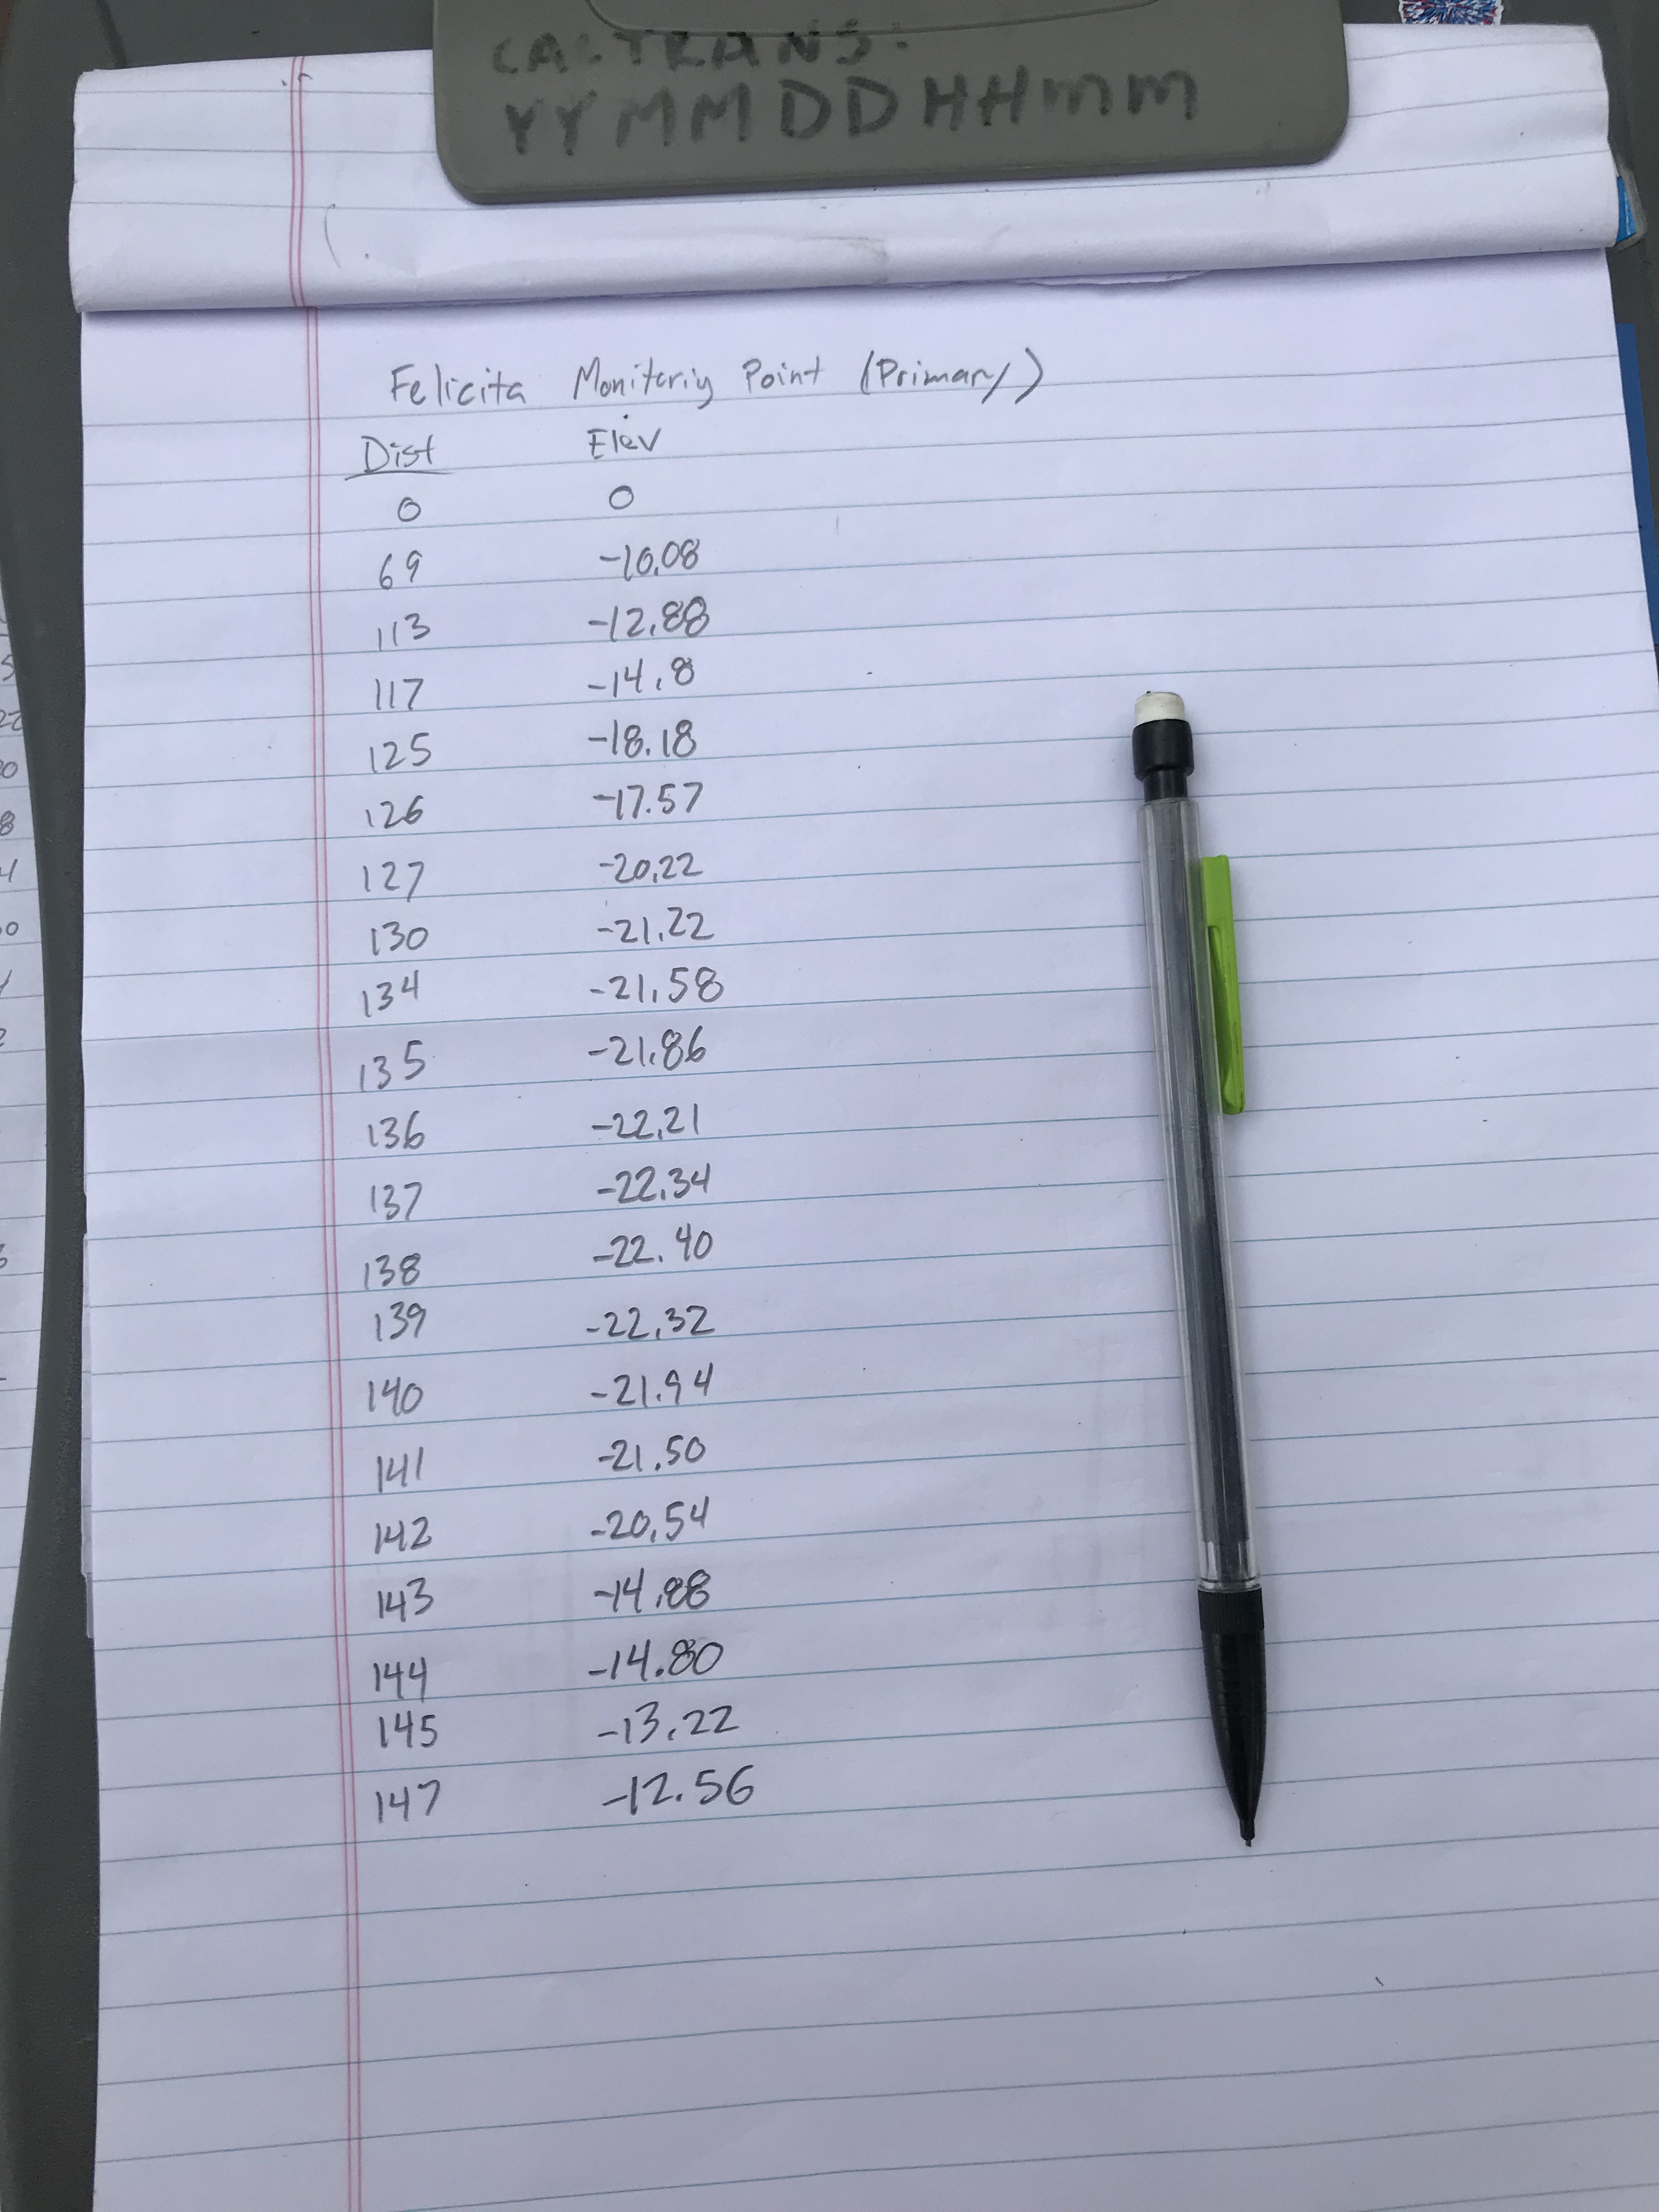 CALTRANS:
YYMMDDHHmm
Felicita Monitoring Point (Primary)
Dist Elev
0 0
69 -10.08
113 -12.88
117 -14.8
125 -18.18
126 -17.57
127 -20.22
130 -21.22
134 -21.58
135 -21.86
136 -22.21
137 -22.34
138 -22.40
139 -22.32
140 -21.94
141 -21.50
142 -20.54
143 -14.88
144 -14.80
145 -13.22
147 -12.56